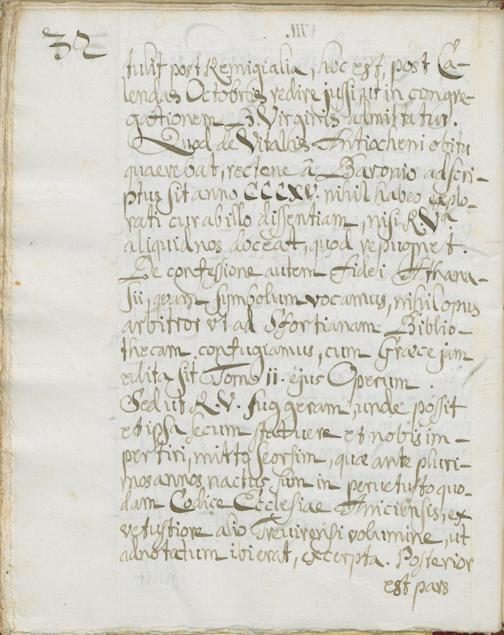 32
tulit post Remigialia, hoc est, post Ca-
lendas Octobris redire jussi, ut in congre-
gationem B. Virginis admittatur.
Quod de Vitalis Antiocheni obitu
quaerebat, rectene â Baronio adscri-
ptus sit anno CCCXV. nihil habeo explo-
rati cur ab illo dissentiam, nisi R.Vª
aliquid nos doceat, quod repugnet.
De confessione autem fidei Athana-
sii, quam symbolum vocamus, nihil opus
arbitror ut ad Sfortianam Biblio-
thecam confugiamus, cum Graece jam
edita sit Tomo ii. ejus Operum.
Sed ut R.V. suggeram, unde possit
et ipsa secum statuere et nobis im-
pertiri, mitto seorsim, quae ante pluri-
mos annos nactus sum in pervetusto quo-
dam Codice Ecclesiae Aniciensis, ex
vetustiore alio Trevirensi volumine, ut
adnotatum ibi erat, excerpta. Posterior
est pars